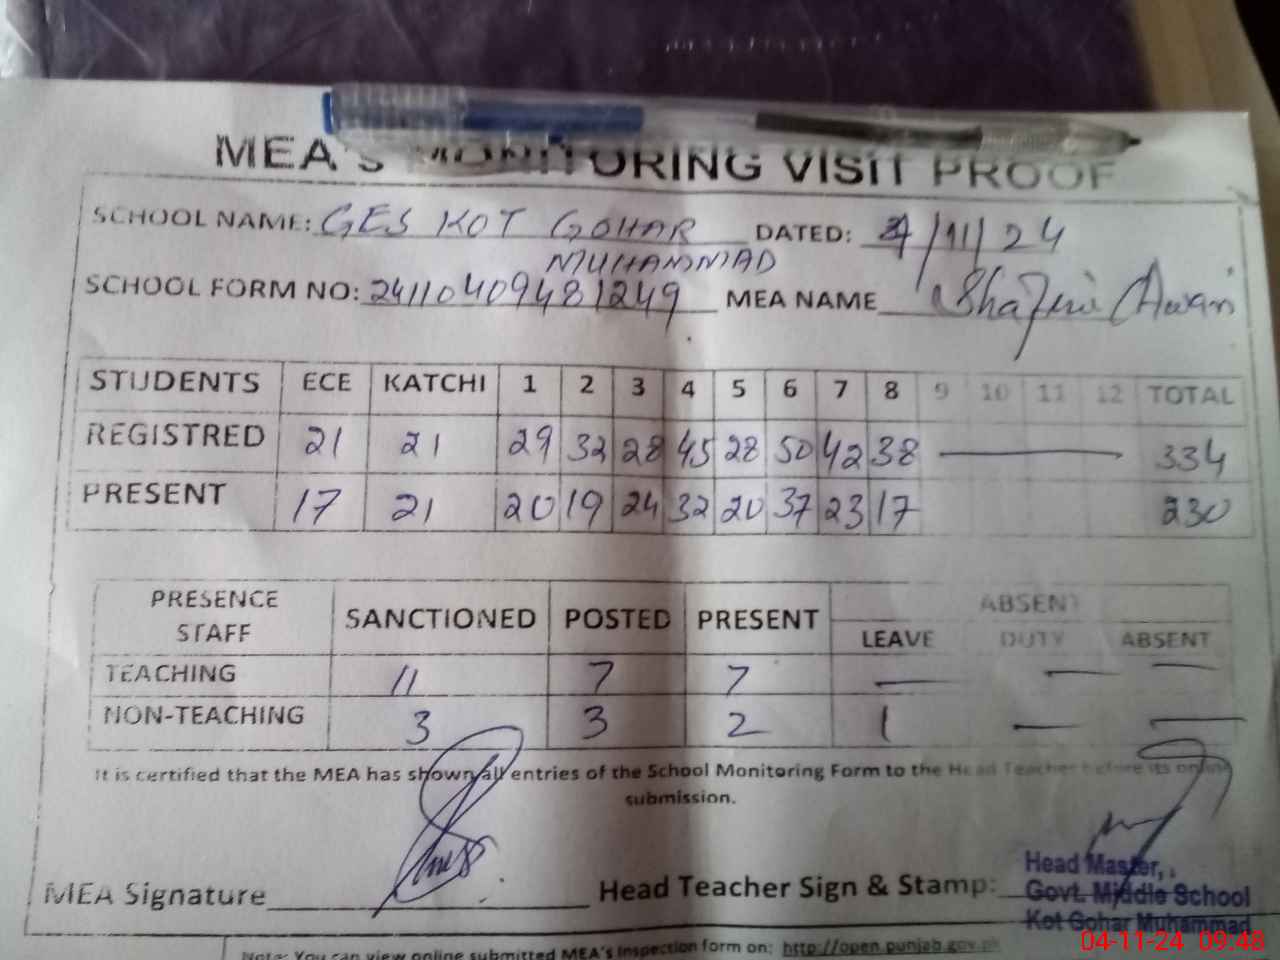 MEA'S MONITORING VISIT PROOF
SCHOOL NAME: GES KOT GOHAR DATED: 4/11/24
MUHAMMAD
SCHOOL FORM NO: 24110409481249 MEA NAME Awan
STUDENTS ECE KATCHI 1 2 3 4 5 6 7 8 9 10 11 12 TOTAL
REGISTRED 21 21 29 32 28 45 28 50 42 38 — 334
PRESENT 17 21 20 19 24 32 20 37 23 17 230
PRESENCE STAFF SANCTIONED POSTED PRESENT ABSENT
LEAVE DUTY ABSENT
TEACHING 11 7 7 — — —
NON-TEACHING 3 3 2 1 — —
It is certified that the MEA has shown all entries of the School Monitoring Form to the Head Teacher before its online
submission.
MEA Signature Head Teacher Sign & Stamp:
Head Master,
Govt. Middle School
Kot Gohar Muhammad
Note: You can view online submitted MEA's Inspection form on: http://open.punjab.gov.pk
04-11-24 09:48